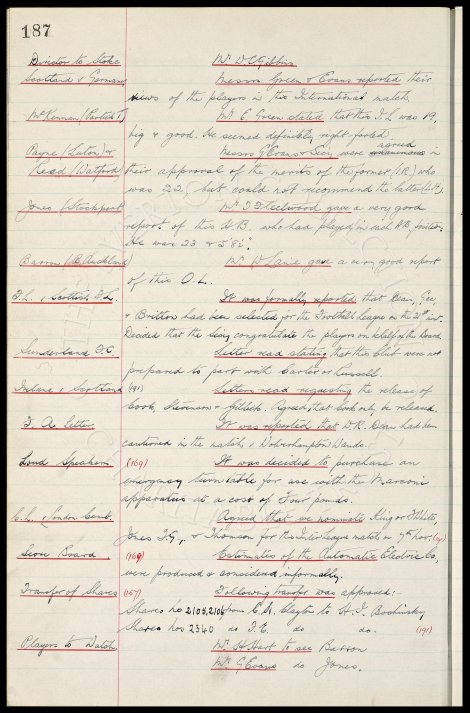 187
Director to Stoke Mr. W. C. Gibbins
Scotland v Germany Messrs Green & Evans reported their
views of the players in this International match.
McKennan (Partick T.) Mr. E. Green stated that this I.L. was 19,
big & good. He seemed definitely right footed.
Payne (Luton) & Messrs G. Evans & were agreed in
Read (Watford) their approval of the merits of the former, (I.R.) who
was 22, but could not recommend the latter
Jones (Stockport Mr. T. Fleetwood gave a very good
report of this H.B. who had played in each H.B. position.
He was 23 & 5' 8½".
Barron (B. Auckland) Mr. W. gave a very good report
of this O.L.
F.L. v Scottish F.L. It was formally reported that Dean, Gee,
& Britton had been selected for the Football League on the inst.
Decided that the Secy congratulate the players on behalf of the Board.
Sunderland F.C. Letter read stating that this club were not
prepared to part with Carter or
v Scotland (191) Letters read requesting the release of
Cook, Stevenson & Agreed that Cook only, be released.
F. A. Letter It was reported that W.R. Dean had been
cautioned in the match, v Wolverhampton Wands.
Loud Speakers (169) It was decided to purchase an
emergency turn table for use with the Marconi
apparatus at a cost of Four pounds.
C.L. v London Comb. Agreed that we nominate King or White,
Jones T.G., & Thomson for this Inter league match on 9th Nov. (191)
Score Board (169) Estimates of the Automatic Electric Co,
were produced & considered informally.
Transfer of Shares (167) Following transfer was approved:-
Shares Nos 2105, 2106 from C. A. Clayton to H. I.
Shares Nos 2340 do F. E. do do. (191)
Players to Watch Mr. H. Hart to see Barron
Mr. G. Evans do Jones.